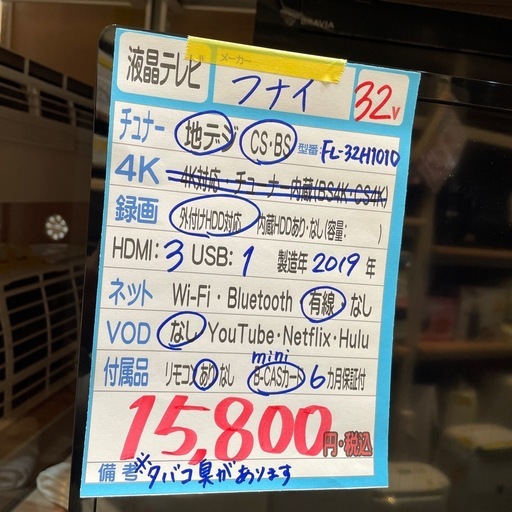 BRAVIA
液晶テレビ メーカー フナイ 32v
チューナー 地デジ CS・BS 型番: FL-32H1010
4K 4K対応・チューナー内蔵(BS4K・CS4K)
録画 外付けHDD対応 内蔵HDDあり・なし(容量: )
HDMI: 3 USB: 1 製造年 2019 年
ネット Wi-Fi・Bluetooth 有線・なし
VOD なし YouTube・Netflix・Hulu
mini
付属品 リモコン あり なし B-CASカード 6 カ月保証付
15,800円・税込
備考 ※タバコ臭があります